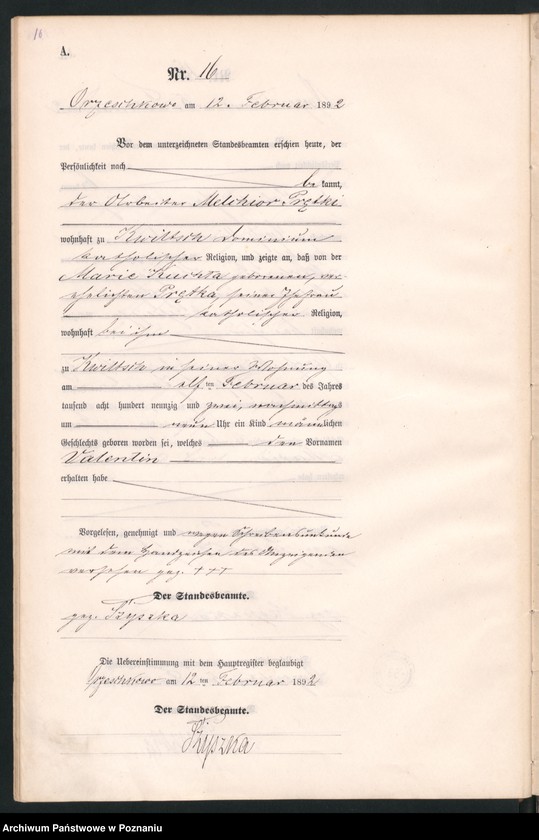 16
A.
Nr. 16
Orzeschkowo am 12. Februar 1892
Vor dem unterzeichneten Standesbeamten erschien heute, der
Persönlichkeit nach
be kannt,
der Arbeiter Melchior Prętki
wohnhaft zu Kwiltsch Dominium
katholischer Religion, und zeigte an, daß von der
Marie Kuschka geborenen, ver
ehelichten Prętka, seiner Ehefrau
katholischer Religion,
wohnhaft bei ihm
zu Kwiltsch in seiner Wohnung
am elf ten Februar des Jahres
tausend acht hundert neunzig und zwei, nachmittags
um neun Uhr ein Kind männlichen
Geschlechts geboren worden sei, welches den Vornamen
Valentin
erhalten habe
Vorgelesen, genehmigt und wegen Schreibensunkunde
mit dem Handzeichen des Anzeigenden
versehen gez. +++
Der Standesbeamte.
gez. Tżyszka
Die Uebereinstimmung mit dem Hauptregister beglaubigt
Orzeschkowo am 12 ten Februar 1892
Der Standesbeamte.
Archiwum Państwowe w Poznaniu